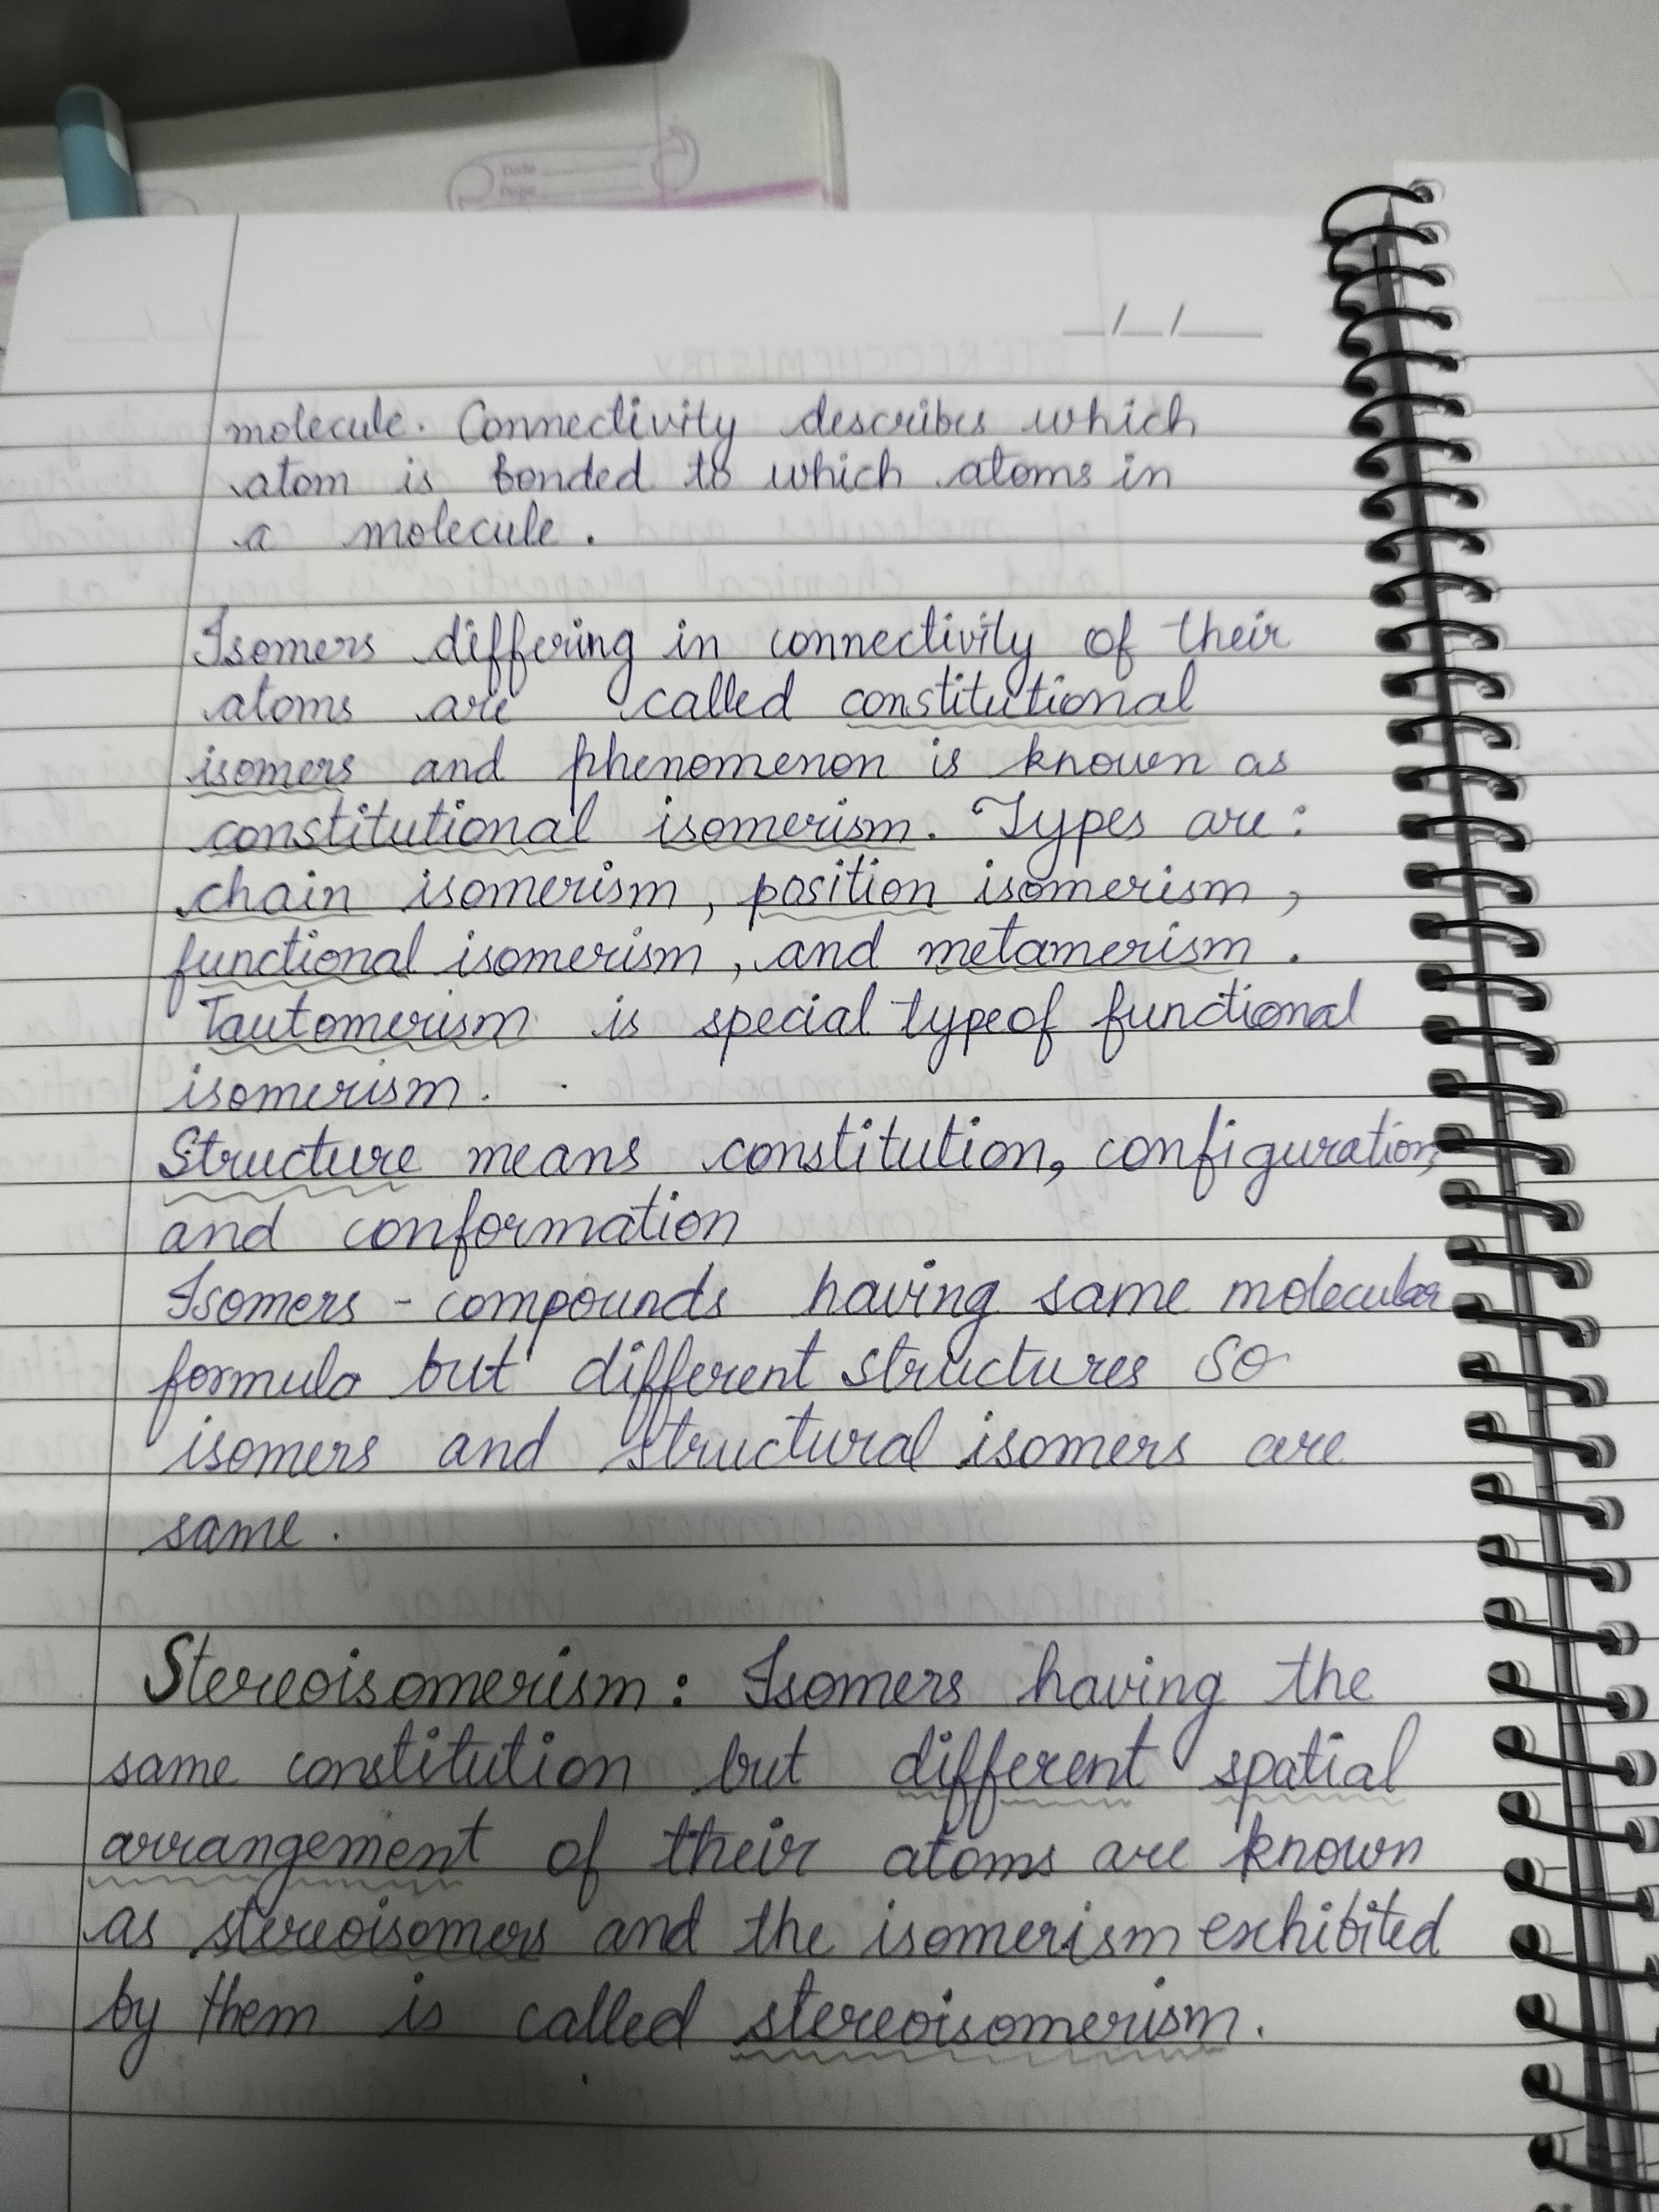 Date
Page
__/__/____
molecule. Connectivity describes which
atom is bonded to which atoms in
a molecule.
Isomers differing in connectivity of their
atoms are called constitutional
isomers and phenomenon is known as
constitutional isomerism. Types are:
chain isomerism, position isomerism,
functional isomerism, and metamerism.
Tautomerism is special type of functional
isomerism.
Structure means constitution, configuration,
and conformation
Isomers - compounds having same molecular
formula but different structures so
isomers and structural isomers are
same.
Stereoisomerism: Isomers having the
same constitution but different spatial
arrangement of their atoms are known
as stereoisomers and the isomerism exhibited
by them is called stereoisomerism.